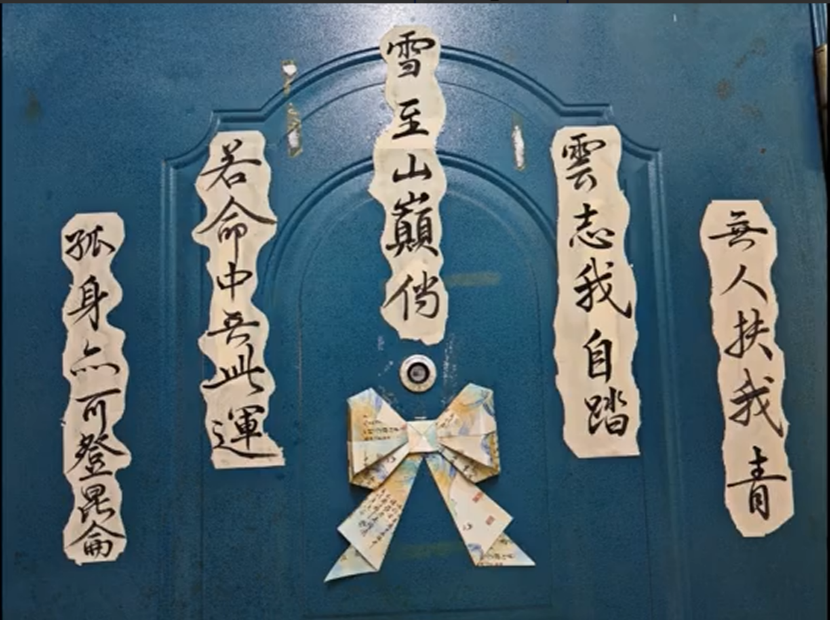 無人扶我青
雲志我自踏
雪至山巔倘
若命中無此運
孤身亦可登昆侖